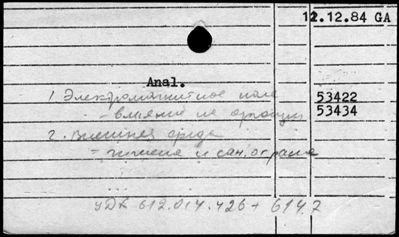 12.12.84 GA
Anal.
1. Электромагнитное поле 53422
- влияние на организм 53434
2. Внешняя среда
- гигиена и сан. охрана
УДК 612.014.426 + 614.7